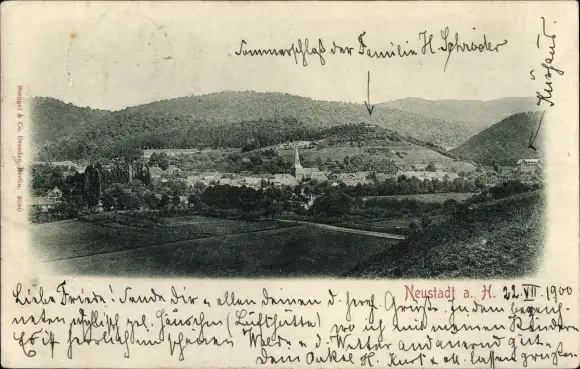 Sommerschloß der Familie H. Schröder
Kurhaus.
Stengel & Co. Dresden-Berlin. 9580
Neustadt a. H. 22. VII. 1900
Liebe Friede! Sende Dir u. allen deinen d. herzl. Grüße. In dem
idyllisch gel. Häuschen (Lufthütte) wo ich mit meinen Kindern
Es ist herrlich im schönen Walde u. d. Wetter andauernd gut.
Dein Onkel H. Kurt u. lassen grüßen